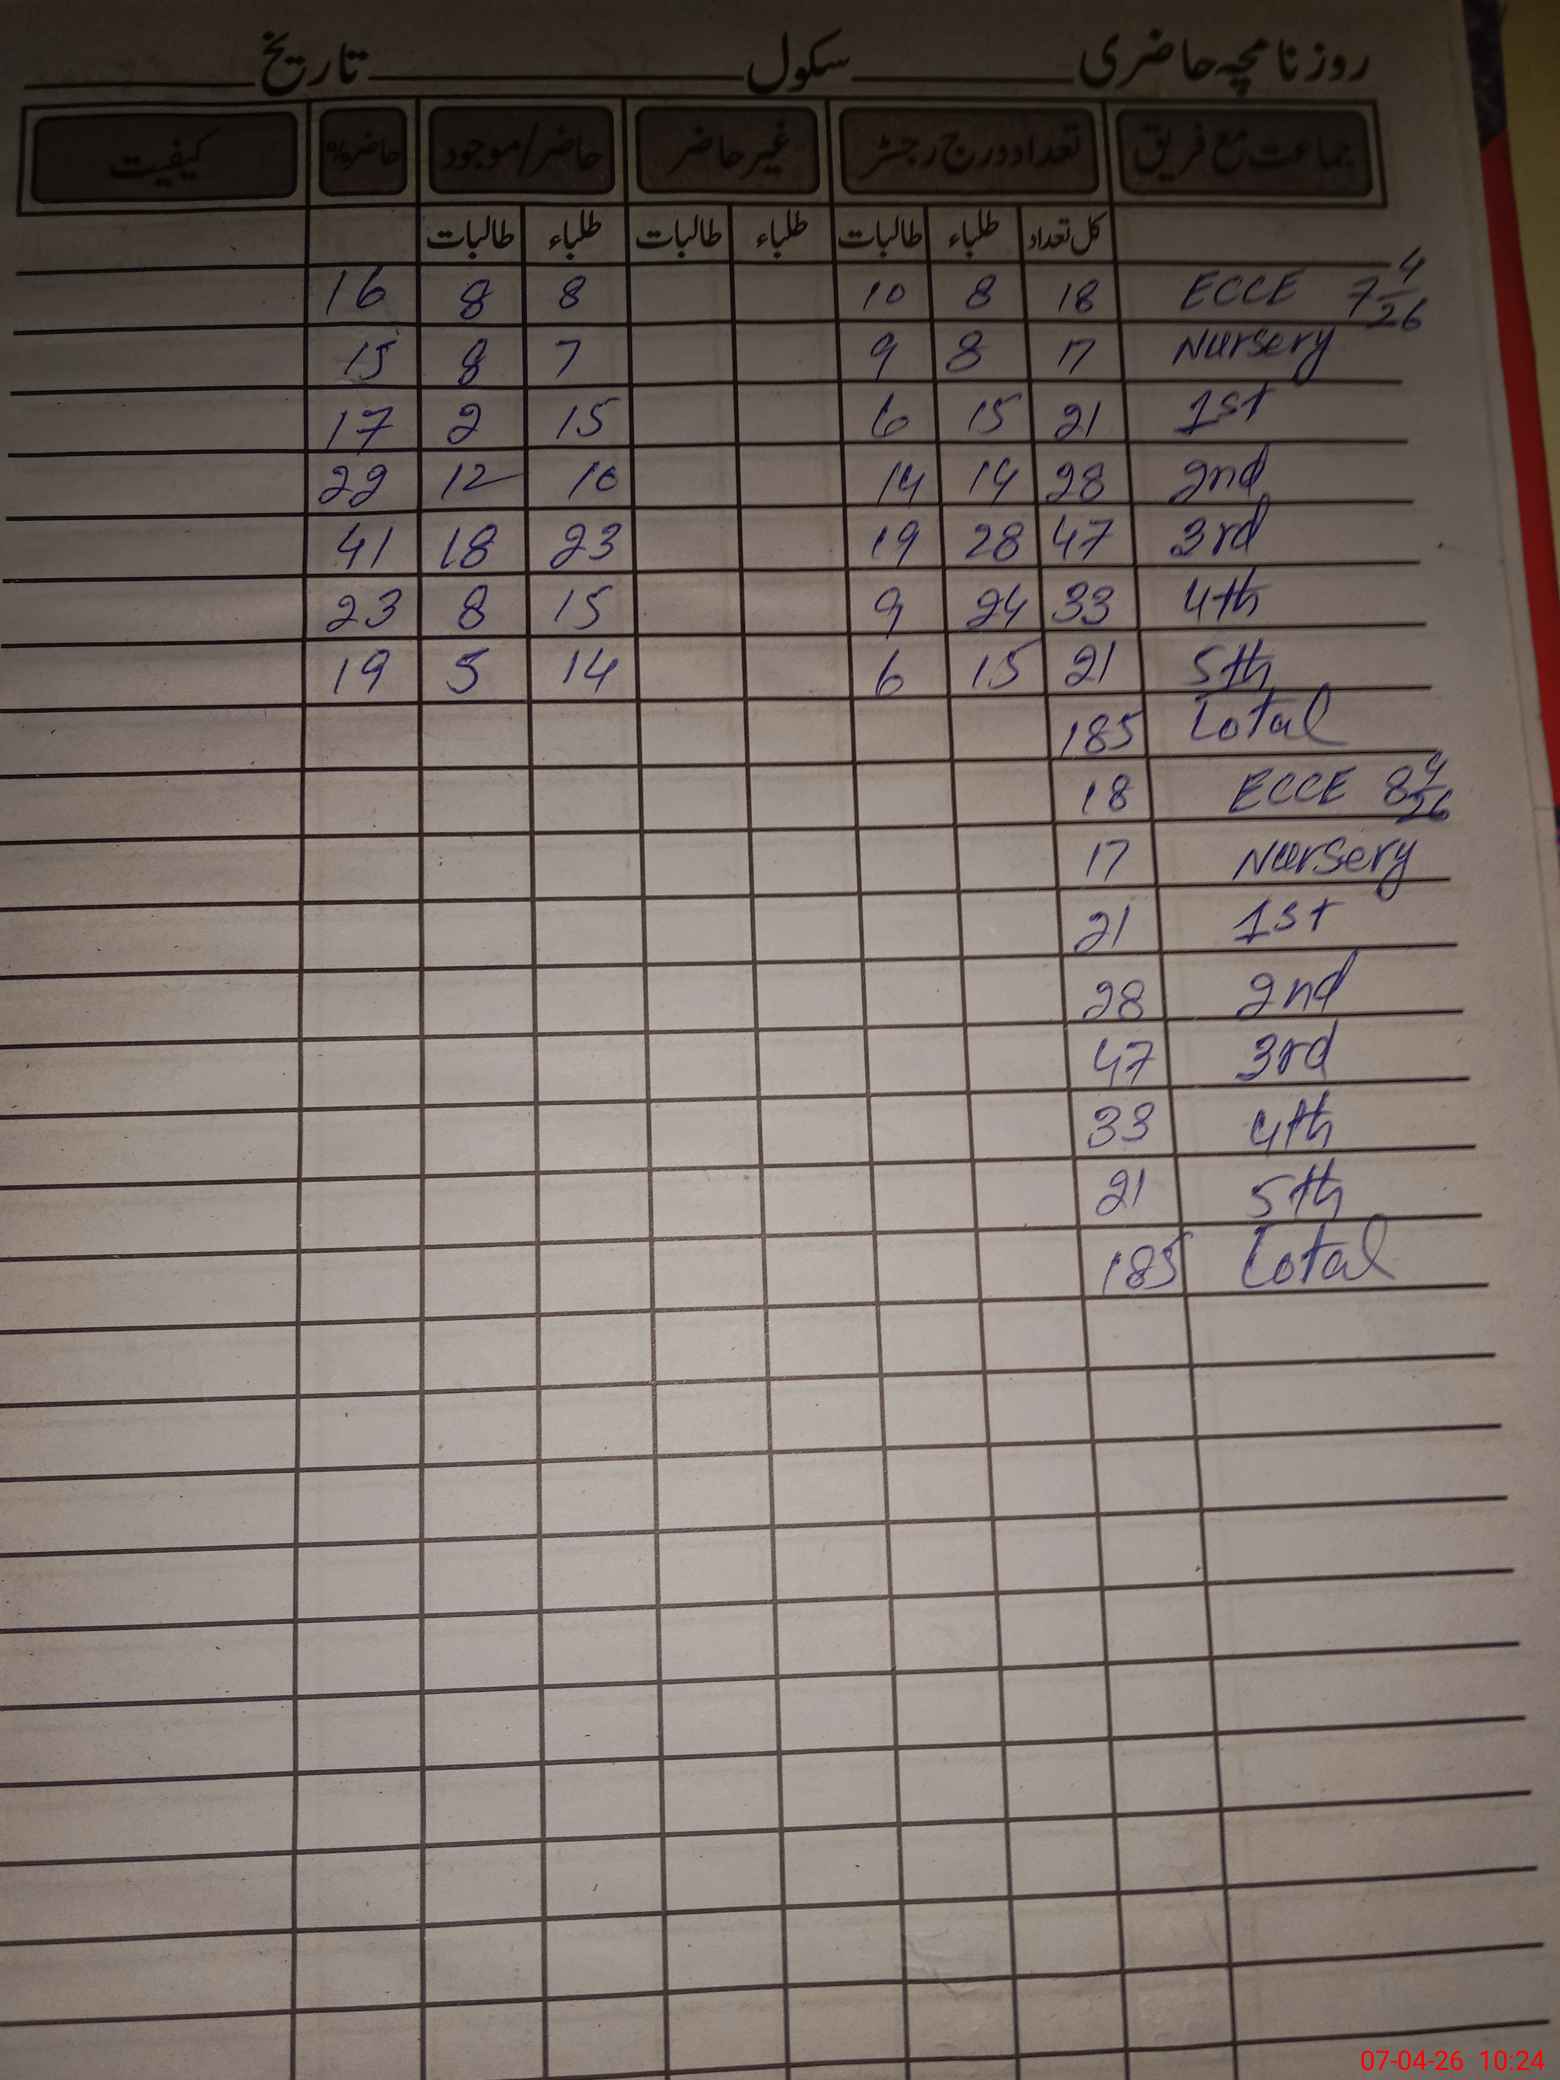 روزنامچہ حاضری ______ سکول ______ تاریخ ______
جماعت مع فریق تعداد درج رجسٹر غیر حاضر حاضر/موجود حاضر% کیفیت
کل تعداد طلباء طالبات طلباء طالبات طلباء طالبات
ECCE 7 4/26 18 8 10 8 8 16
Nursery 17 8 9 7 8 15
1st 21 15 6 15 2 17
2nd 28 14 14 10 12 22
3rd 47 28 19 23 18 41
4th 33 24 9 15 8 23
5th 21 15 6 14 5 19
Total 185
ECCE 8 4/26 18
Nursery 17
1st 21
2nd 28
3rd 47
4th 33
5th 21
Total 185
07-04-26 10:24